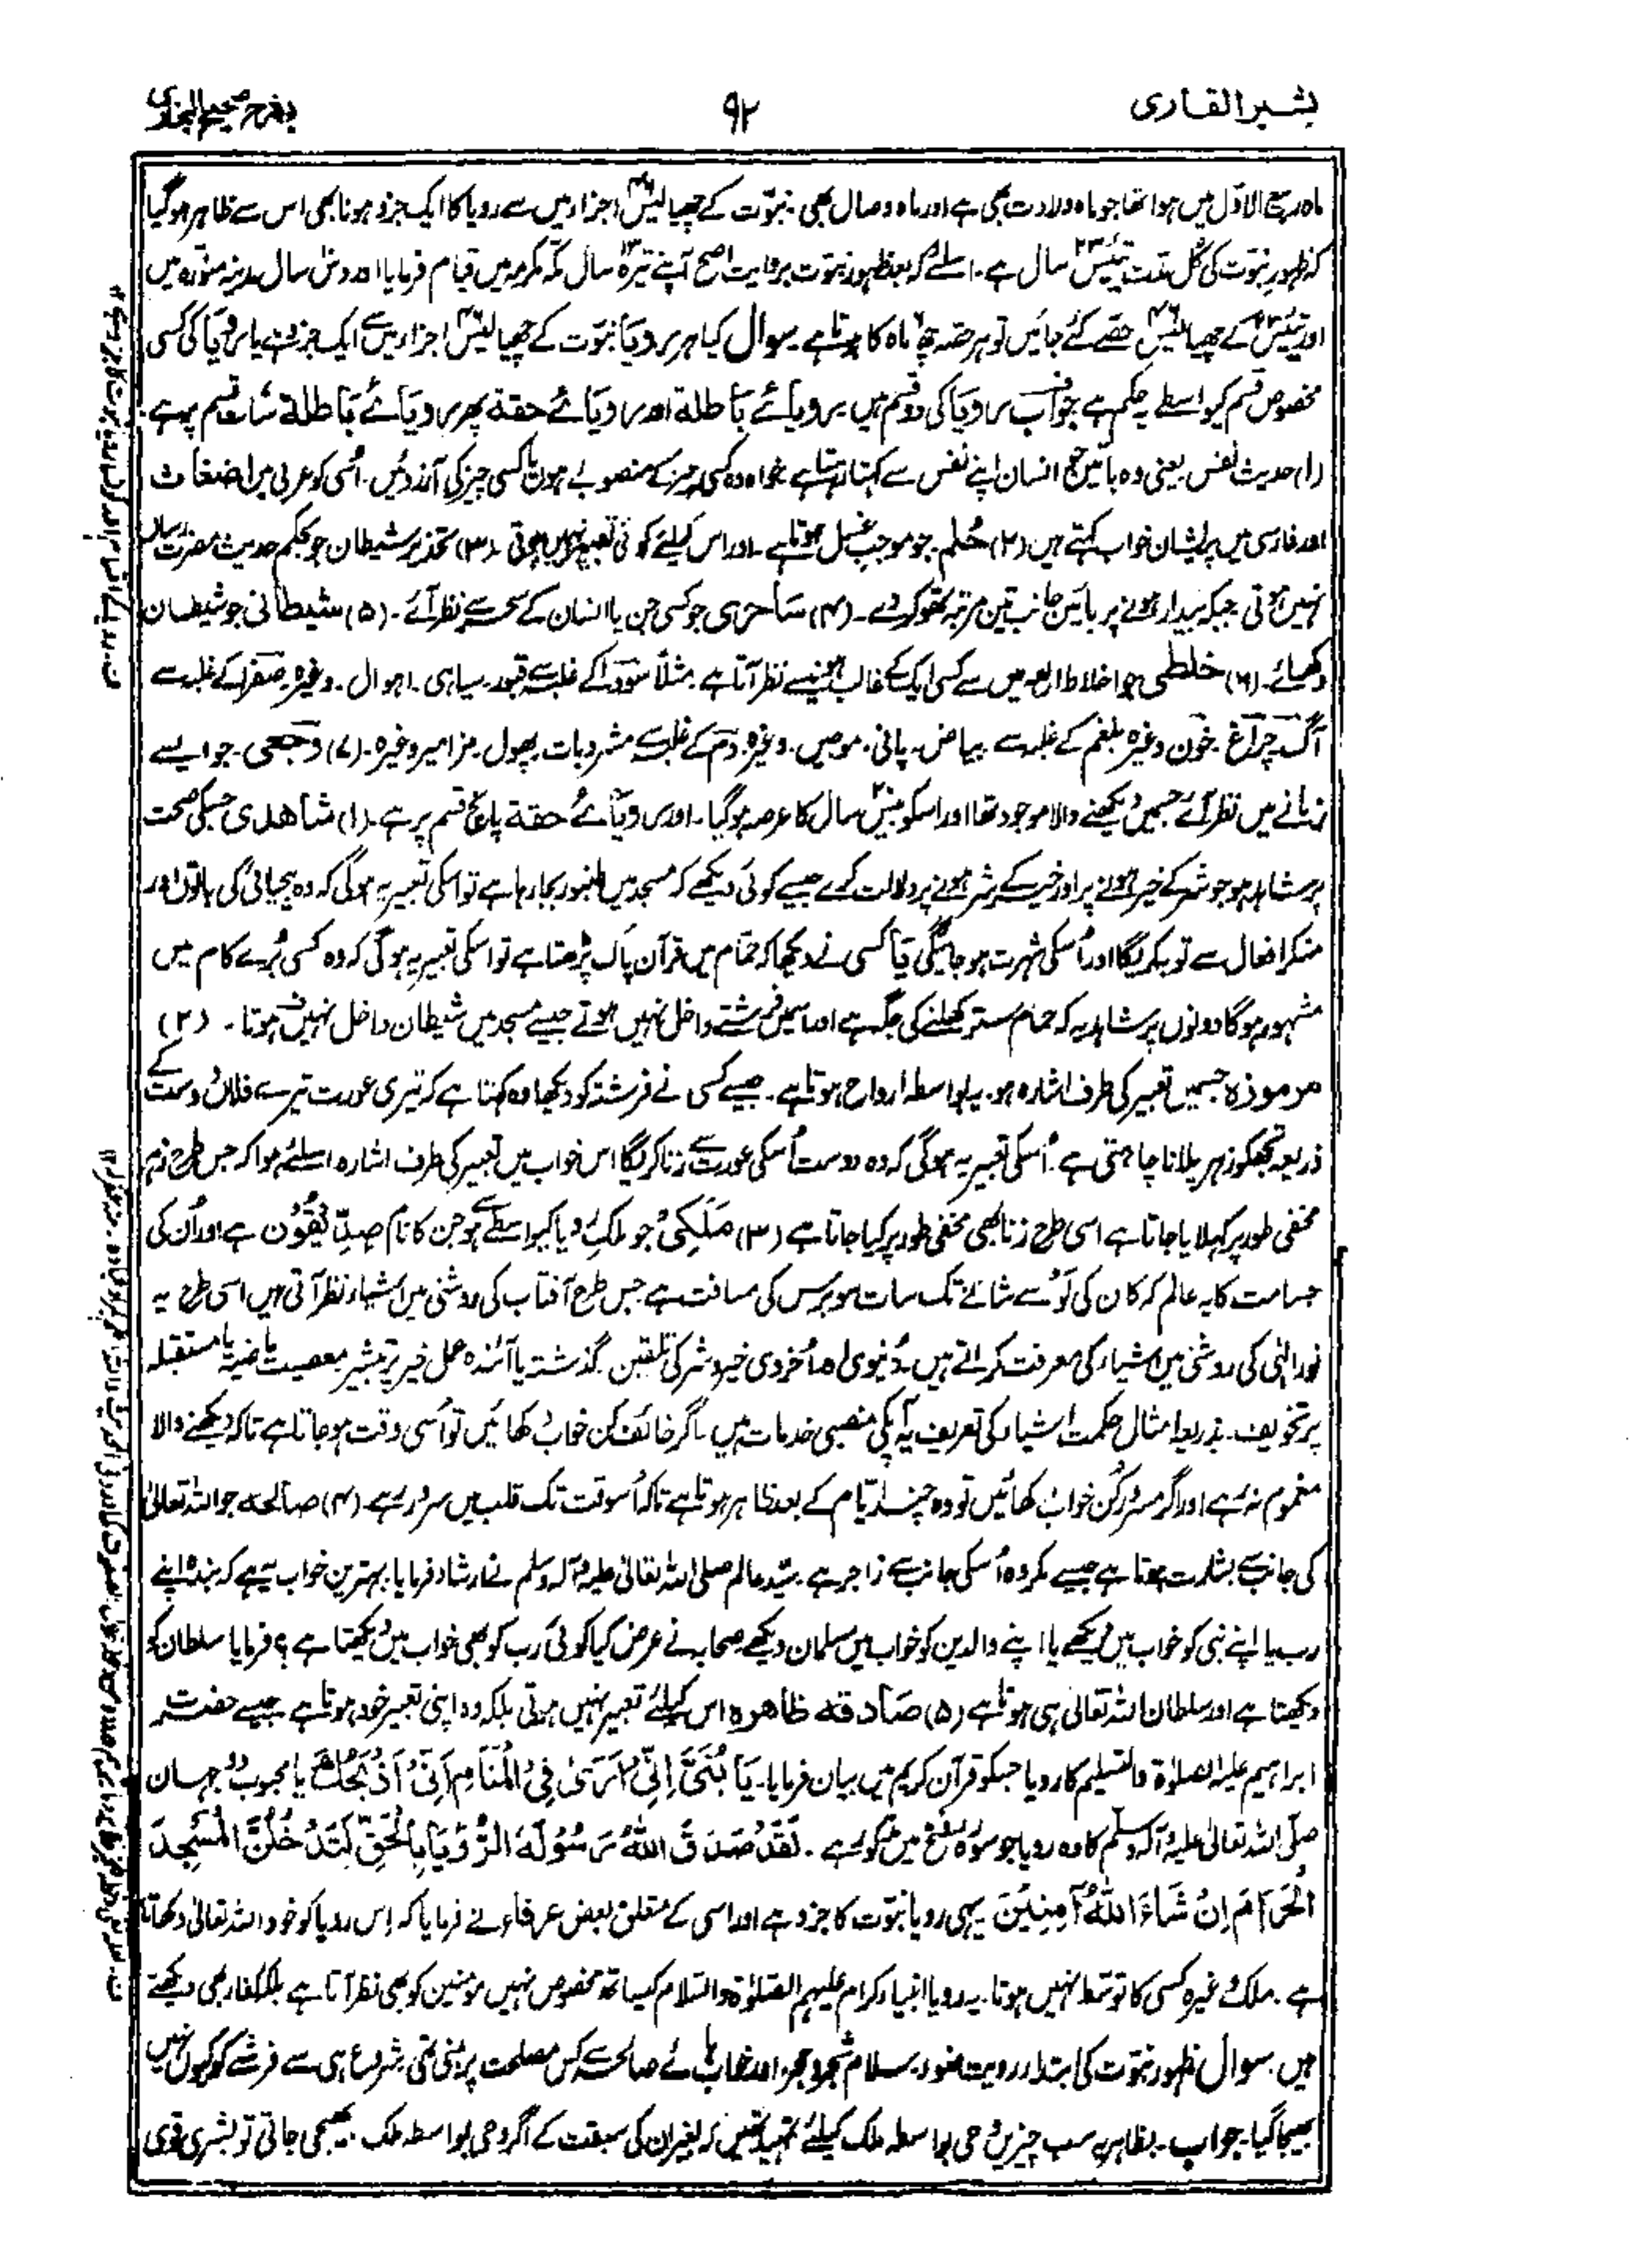 بشیر القاری
۹۲
بشرح صحیح البخاری
ماہ ربیع الاوّل میں ہوا تھا جو ماہ ولادت بھی ہے اور ماہ وصال بھی۔ نبوّت کے چھیالیس۴۶ اجزاء میں سے رویا کا ایک جزو ہونا بھی اس سے ظاہر ہوگیا
کہ ظہورِ نبوّت کی کُل مدّت تیئیس۲۳ سال ہے۔ اسلئے کہ بعد ظہورِ نبوّت بروایت اصح آپنے تیرہ۱۳ سال مکّہ مکرمہ میں قیام فرمایا اور دس سال مدینہ منوّرہ میں
اور تیئیس۲۳ کے چھیالیس۴۶ حصّے کئے جائیں تو ہر حصّہ چھ ماہ کا ہوتا ہے۔ سوال کیا ہر رویا نبوّت کے چھیالیس۴۶ اجزاء میں سے ایک جزء ہے یا رویا کی کسی
مخصوص قسم کیواسطے یہ حکم ہے جواب رویا کی دو قسم ہیں رویائے باطلۃ اور رویائے حقۃ پھر رویائے باطلۃ سات قسم پر ہے
(۱) حدیث نفس یعنی وہ باتیں جو انسان اپنے نفس سے کہتا رہتا ہے خواہ وہ کسی چیز کے منصوبے ہوں یا کسی چیز کی آرزوئیں۔ اُسی کو عربی میں اضغاث
اور فارسی میں پریشان خواب کہتے ہیں (۲) حُلم۔ جو موجبِ غسل ہوتا ہے۔ اور اس کیلئے کوئی تعبیر نہیں ہوتی۔ (۳) تحذیر شیطان جو بحکم حدیث مضرت رساں
نہیں ہوتی جبکہ بیدار ہونے پر بائیں جانب تین مرتبہ تھوک دے۔ (۴) ساحری جو کسی جن یا انسان کے سحر سے نظر آئے۔ (۵) شیطانی جو شیطان
دکھائے۔ (۶) خلطی جو اخلاط اربعہ میں سے کسی ایک کے غالب ہونیسے نظر آتا ہے۔ مثلاً سودا کے غلبہ سے قبور۔ سیاہی۔ اہوال۔ وغیرہ۔ صفرا کے غلبہ سے
آگ۔ چراغ۔ خون وغیرہ بلغم کے غلبہ سے۔ بیاض۔ پانی۔ موجیں۔ وغیرہ۔ دم کے غلبہ سے مشروبات۔ پھول۔ مزامیر وغیرہ۔ (۷) وجعی۔ جو ایسے
زمانے میں نظر آئے جسمیں دیکھنے والا موجود تھا اور اسکو بیس۲۰ سال کا عرصہ ہوگیا۔ اور رویائے حقۃ پانچ قسم پر ہے۔ (۱) شاھدی جسکی صحت
پر شاہد ہو جو شر کے خیر ہونے پر اور خیر کے شر ہونے پر دلالت کرے جیسے کوئی دیکھے کہ مسجد میں طنبور بجا رہا ہے تو اسکی تعبیر یہ ہوگی کہ وہ بیحیائی کی باتوں اور
منکر افعال سے توبہ کریگا اور اُسکی شہرت ہو جائیگی یا کسی نے دیکھا کہ حمّام میں قرآن پاک پڑھتا ہے تو اسکی تعبیر یہ ہوگی کہ وہ کسی بُرے کام میں
مشہور ہوگا دونوں پر شاہد یہ کہ حمام ستر کھلنے کی جگہ ہے اور اسمیں فرشتے داخل نہیں ہوتے جیسے مسجد میں شیطان داخل نہیں ہوتا۔ (۲)
مرموزہ جسمیں تعبیر کی طرف اشارہ ہو۔ یہ بواسطہ ارواح ہوتا ہے۔ جیسے کسی نے فرشتہ کو دیکھا وہ کہتا ہے کہ تیری عورت تیرے فلاں دوست کے
ذریعہ تجھکو زہر پلانا چاہتی ہے۔ اُسکی تعبیر یہ ہوگی کہ وہ دوست اُسکی عورت سے زنا کریگا اس خواب میں تعبیر کی طرف اشارہ اسلئے ہوا کہ جس طرح زہر
مخفی طور پر کھلایا جاتا ہے اسی طرح زنا بھی مخفی طور پر کیا جاتا ہے (۳) مَلَکِیٌ جو ملکِ رُویا کیواسطے سے ہو جن کا نام صِدِّیقُون ہے اور اُن کی
جسامت کا یہ عالم کہ کان کی لَو سے شانے تک سات سو برس کی مسافت ہے جس طرح آفتاب کی روشنی میں اشیاء نظر آتی ہیں اسی طرح یہ
نورِ الٰہی کی روشنی میں اشیاء کی معرفت کراتے ہیں۔ دُنیوی اور اُخروی خیر و شر کی تلقین۔ گذشتہ یا آئندہ عمل خیر پر تبشیر معصیت ماضیہ یا مستقبلہ
پر تخویف۔ بذریعہ امثال حکمت اشیاء کی تعریف یہ آپکی منصبی خدمات ہیں۔ اگر خائف کن خواب دکھائیں تو اُسی وقت ہو جاتا ہے تاکہ دیکھنے والا
مغموم نہ رہے اور اگر مسرور کُن خواب دکھائیں تو وہ چند ایّام کے بعد ظاہر ہوتا ہے تاکہ اُسوقت تک قلب میں سرور رہے (۴) صالحہ جو اللہ تعالیٰ
کی جانب سے بشارت ہوتا ہے جیسے مکروہ اُسکی جانب سے زاجر ہے۔ سیّد عالم صلی اللہ تعالیٰ علیہ وآلہ وسلم نے ارشاد فرمایا بہترین خواب یہ ہے کہ بندہ اپنے
رب یا اپنے نبی کو خواب میں دیکھے یا اپنے والدین کو خواب میں مسلمان دیکھے صحابہ نے عرض کیا کوئی رب کو بھی خواب میں دیکھتا ہے؟ فرمایا سلطان کو
دیکھتا ہے اور سلطان اللہ تعالیٰ ہی ہوتا ہے (۵) صادقہ ظاھرہ اس کیلئے تعبیر نہیں ہوتی بلکہ وہ اپنی تعبیر خود ہوتا ہے جیسے حضرت
ابراہیم علیہ الصلوٰۃ والتسلیم کا رویا جسکو قرآن کریم میں بیان فرمایا۔ یَا بُنَیَّ اِنِّیْ اَرَیٰ فِی الْمَنَامِ اَنِّیْ اَذْبَحُکَ یا محبوب دو جہان
صلی اللہ تعالیٰ علیہ وآلہ وسلم کا وہ رویا جو سورہ فتح میں مذکور ہے۔ لَقَدْ صَدَقَ اللہُ رَسُوْلَہُ الرُّؤْیَا بِالْحَقِّ لَتَدْخُلُنَّ الْمَسْجِدَ
الْحَرَامَ اِنْ شَاءَ اللہُ آمِنِیْنَ یہی رویا نبوّت کا جزو ہے اور اسی کے متعلق بعض عرفاء نے فرمایا کہ اِس رویا کو خود اللہ تعالیٰ دکھاتا
ہے۔ ملک وغیرہ کسی کا توسّط نہیں ہوتا۔ یہ رویا انبیاء کرام علیہم الصلوٰۃ والسلام کیساتھ مخصوص نہیں مؤمنین کو بھی نظر آتا ہے بلکہ کفار بھی دیکھتے
ہیں۔ سوال ظہورِ نبوّت کی ابتداء رویتِ ضوء۔ سلام شجر و حجر۔ اور خوابہائے صالحہ سے کس مصلحت پر مبنی تھی۔ شروع ہی سے فرشتے کو کیوں نہیں
بھیجا گیا۔ جواب۔ بظاہر یہ سب چیزیں وحی بواسطہ ملک کیلئے تمہید تھیں کہ بغیر ان کی سبقت کے اگر وحی بواسطہ ملک بھیجی جاتی تو بشری قوی